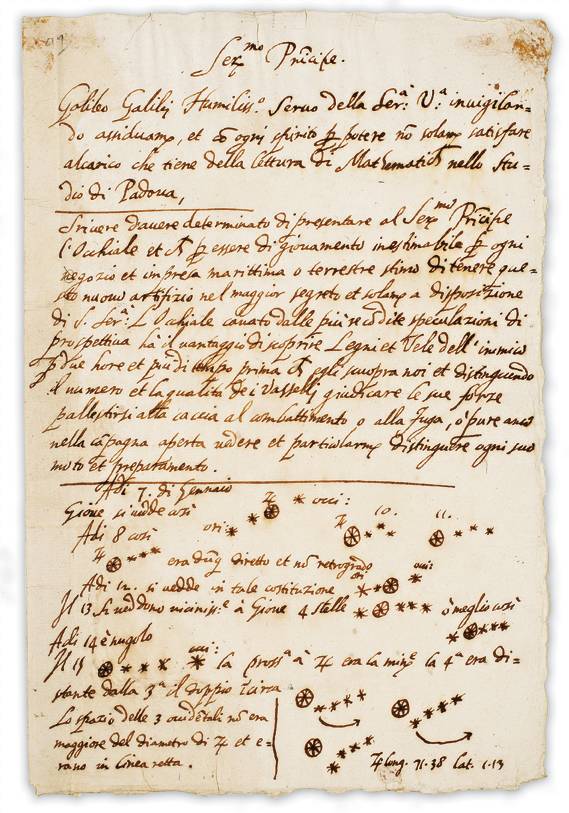 99
Ser.mo Prĩcipe.
Galileo Galilej Humiliss.o Servo della Ser.a V.a invigilan=
do assiduam.e, et cõ ogni spirito ꝑ potere nõ solam.e satisfare
alcarico che tiene della lettura di Mathematich.e nello Stu=
dio di Padova,
Scrivere d'avere determinato di presentare al Ser.mo Prĩcipe
l'Occhiale et ch ꝑ essere di giovamento inestimabile ꝑ ogni
negozio et impresa marittima o terrestre stimo di tenere que=
sto nuovo artifizio nel maggior segreto et solam.e a disposizione
di S. Ser.a L'Occhiale cavato dalle più recõdite speculazioni di
prospettiva ha il vantaggio di scoprire Legni et Vele dell' inimico
ꝑ due hore et più di tempo prima ch egli scuopra noi et distinguendo
il numero et la qualità dei Vasselli giudicare le sue forze
pallestirsi alla caccia al combattimento o alla fuga, o pure anco
nella cãpagna aperta vedere et particolarm.e distinguere ogni suo
moto et preparamento.
Adi 7. di Gennaio
Gioue si vedde così ♃ occi:
Adi 8 così ori: ♃ 10. 11.
♃ era dũq. diretto et nõ retrogrado
Adi 12. si vedde in tale costituzione ori occi:
Il 13 si veddono vicinis.e à Gioue 4 stelle ò meglio così
Adi 14 è nugolo
Il 15 occi: la pross.a à ♃ era la min.e la 4.a era di=
stante dalla 3.a il doppio circa
Lo spazio delle 3 occidẽtali nõ era
maggiore del diametro di ♃ et e=
rano in linea retta.
♃ long. 71.38 lat. 1.13